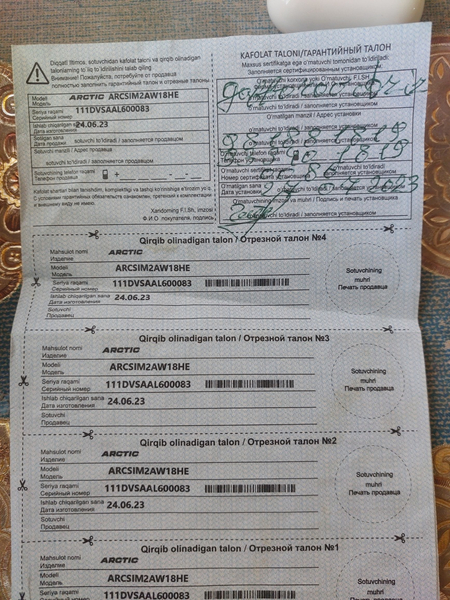 Diqqat! Iltimos, sotuvchidan kafolat taloni va qirqib olinadigan
talonlarning to'liq to'ldirishini talab qiling
Внимание! Пожалуйста, потребуйте от продавца
полностью заполнить гарантийный талон и отрезные талоны.
Modeli
Модель
ARCTIC ARCSIM2AW18HE
Seriya raqami
111DVSAAL600083
Ishlab chiqarilgan sana
Дата изготовления
24.06.23
Sotilgan sana
Дата продажи
sotuvchi to'ldiradi / заполняется продавцом
Sotuvchi manzil / Адрес продавца
sotuvchi to'ldiradi / заполняется продавцом
Sotuvchining telefon raqami
Телефон продавца
+
Xaridorning F.I.Sh, imzosi
Ф.И.О. покупателя, подпись
KAFOLAT TALONI/ГАРАНТИЙНЫЙ ТАЛОН
Maxsus sertifikatga ega o'matuvchi tomonidan to'ldiriladi:
Заполняется сертифицированным установщиком:
o'matuvchi to'ldiradi / заполняется установщиком
O'rnatilgan manzil / Адрес установки
o'matuvchi to'ldiradi / заполняется установщиком
Номер сертификата установщика
O'rnatilgan sana
Дата установки
2023
Qirqib olinadigan talon / Отрезной талон №4
Mahsulot nomi
Изделие
ARCTIC
Modeli
Модель
ARCSIM2AW18HE
Seriya raqami
Серийный номер
111DVSAAL600083
Ishlab chiqarilgan sana
Дата изготовления
24.06.23
Sotuvchi
Продавец
Sotuvchining
muhri
Печать продавца
Qirqib olinadigan talon / Отрезной талон №3
Mahsulot nomi
Изделие
ARCTIC
Modeli
Модель
ARCSIM2AW18HE
Seriya raqami
Серийный номер
111DVSAAL600083
Ishlab chiqarilgan sana
Дата изготовления
24.06.23
Sotuvchi
Продавец
Sotuvchining
muhri
Печать продавца
Qirqib olinadigan talon / Отрезной талон №2
Mahsulot nomi
Изделие
ARCTIC
Modeli
Модель
ARCSIM2AW18HE
Seriya raqami
Серийный номер
111DVSAAL600083
Ishlab chiqarilgan sana
Дата изготовления
24.06.23
Sotuvchi
Продавец
Sotuvchining
muhri
Печать продавца
Qirqib olinadigan talon / Отрезной талон №1
Mahsulot nomi
Изделие
ARCTIC
Modeli
Модель
ARCSIM2AW18HE
Seriya raqami
111DVSAAL600083
Sotuvchining
muhri